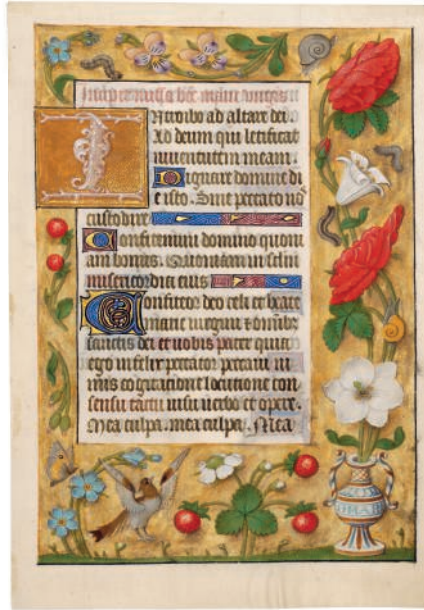 Incipit missa bte marie virginis
Introibo ad altare dei.
Ad deum qui letificat
iuuentutem meam.
Dignare domine di
e isto. Sine peccato nos
custodire
Confitemini domino quoni
am bonus. Quoniam in selm
misericordia eius
Confiteor deo celi et beate
marie uirgini et omnibz
sanctis dei et uobis pater quia
ego infelix peccator peccaui ni
mis cogitatione locutione con
sensu tactu uisu uerbo et opere.
Mea culpa. mea culpa. Mea